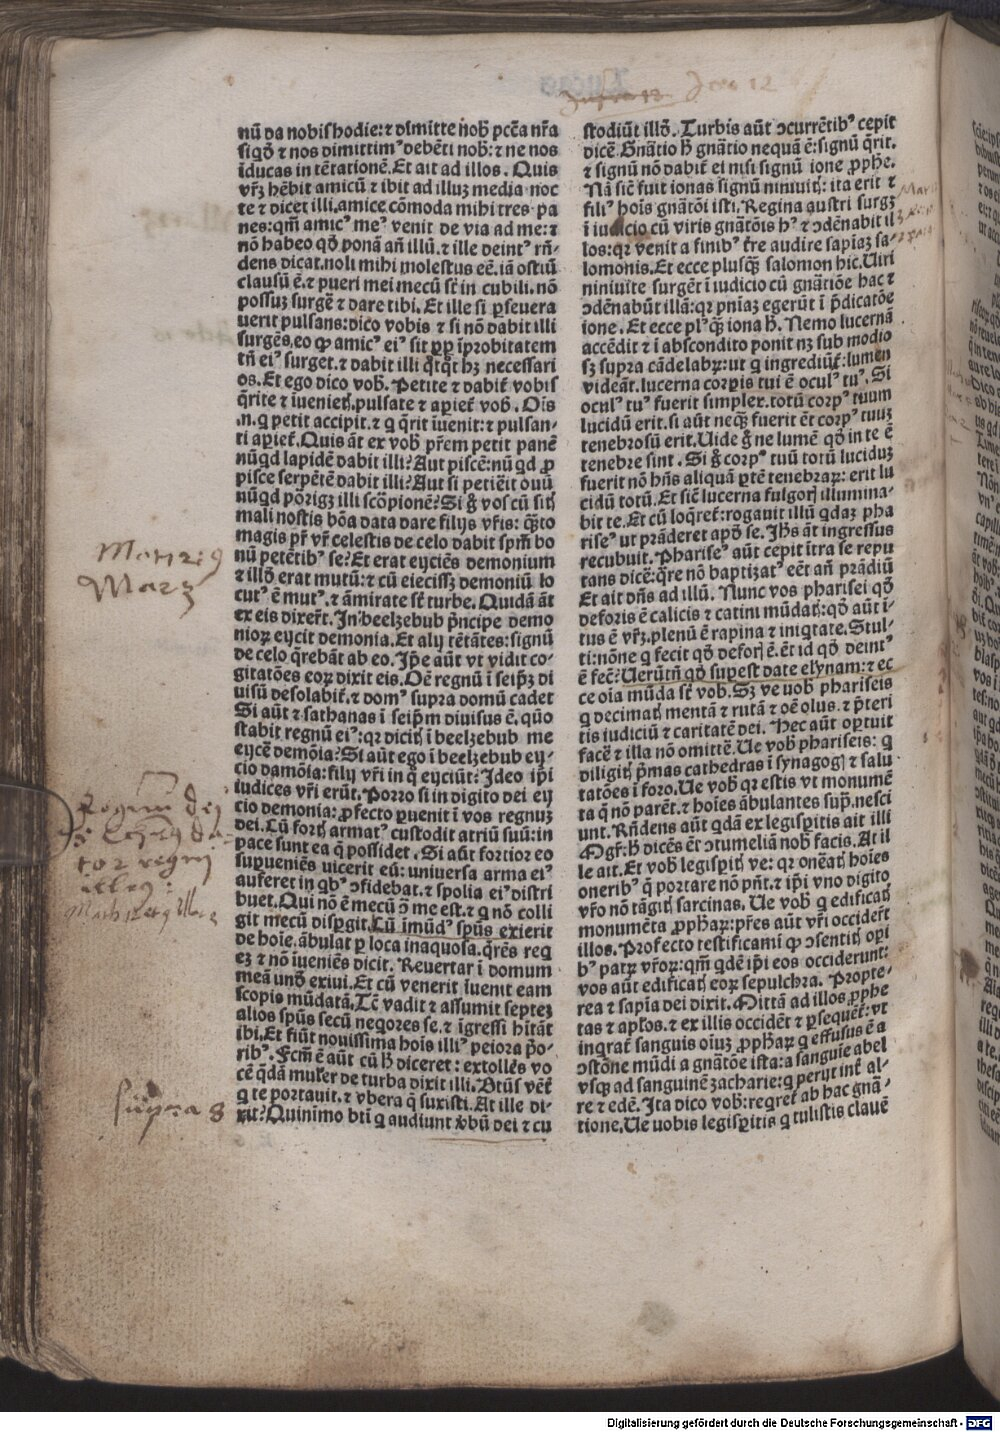 nū da nobis hodie: ⁊ dimitte nob̄ pcc̄a nr̄a
siq̄dē ⁊ nos dimittimꝰ debēti nob̄: ⁊ ne nos
īducas in tētationē. Et ait ad illos. Quis
vr̄ꝫ hēbit amicū ⁊ ibit ad illuꝫ media noc
te ⁊ dicet illi. amice cōmoda mihi tres pa
nes: qm̄ amicꝰ meꝰ venit de via ad me: ⁊
nō habeo qđ ponā añ illū. ⁊ ille deintꝰ rñ-
dens dicat. noli mihi molestus eē. iā ostiū
clausū ē. ⁊ pueri mei mecū st̄ in cubili. nō
possuꝫ surgē ⁊ dare tibi. Et ille si ꝑseuera
uerit pulsans: dico vobis ⁊ si nō dabit illi
surgēs. eo ꝙ amicꝰ eiꝰ sit ꝓpt̄ īprobitatem
tñ eiꝰ surget. ⁊ dabit illi q̄tq̄t hꝫ necessari
os. Et ego dico vob̄. Petite ⁊ dabit̄ vobis
q̄rite ⁊ iueniet̄. pulsate ⁊ apiet̄ vob̄. Oīs
.n. q petit accipit. ⁊ q q̄rit iuenit: ⁊ pulsan-
ti apiet̄. Quis āt ex vob̄ pr̄em petit panē
nūqd lapidē dabit illi? Aut piscē: nūqd ꝓ
pisce serpētē dabit illi? Aut si petiēit ouū
nūqd pōrigꝫ illi scōpionē? Si g̊ vos cū sit̄
mali nostis bōa data dare filijs vr̄is: q̄nto
magis pr̄ vr̄ celestis de celo dabit spm̄ bo
nū petētibꝰ se? Et erat eyciēs demonium
⁊ illđ erat mutū: ⁊ cū eiecissꝫ demoniū lo
cutꝰ ē mutꝰ. ⁊ āmirate st̄ turbe. Quidā āt
ex eis dixer̄t. In beelzebub p̄ncipe demo
nioꝝ eycit demonia. Et alij tētātes: signū
de celo q̄rebāt ab eo. Ip̄e aūt vt vidit co-
gitatōes eoꝝ dixit eis. Oē regnū i seip̄ꝫ di
uisū desolabit̄. ⁊ domꝰ supra domū cadet
Si aūt ⁊ sathanas i seip̄m diuisus ē. quō
stabit regnū eiꝰ: qꝛ dicit̄ i beelzebub me
eycē demōia? Si aūt ego i beelzebub ey-
cio damōia: filij vr̄i in q̄ eyciūt? Ideo ip̄i
iudices vr̄i erūt. Porro si in digito dei eij
cio demonia: ꝓfecto ꝑuenit i vos regnuꝫ
dei. Cū fort̄ armatꝰ custodit atriū suū: in
pace sunt ea q̄ possidet. Si aūt fortior eo
supueniēs uicerit eū: universa arma eiꝰ
auferet in qbꝰ ↄfidebat. ⁊ spolia eiꝰ distri
buet. Qui nō ē mecū ↄ̄ me est. ⁊ q nō colli
git mecū dispgit. Cū imūdꝰ spūs exierit
de hoīe. ābulat ꝑ loca inaquosa. q̄rēs req
eꝫ ⁊ nō iueniēs dicit. Reuertar i domum
meā unđ exiui. Et cū venerit iuenit eam
scopis mūdatā. Tē vadit ⁊ assumit septeꝫ
alios spūs secū neqores se. ⁊ īgressi hītāt
ibi. Et fiūt nouissima hois illiꝰ peiora pō-
ribꝰ. Fcm̄ ē aūt cū h̄ diceret: extollēs vo
cē q̄dā mulr̄ de turba dixit illi. Btūs vēt̄
q te portauit. ⁊ vbera q̄ suxisti. At ille di-
xit? Quinimo bti̇̄ q audiunt ꝟbū dei ⁊ cu
stodiūt illđ. Turbis aūt ↄcurrētibꝰ cepit
dicē. Gnātio h̄ gnātio nequā ē: signū q̄rit.
⁊ signū nō dabit̄ ei nisi signū ione ꝓph̄e.
Nā siē fuit ionas signū niniuit̄: ita erit ⁊
filiꝰ hoīs gnātōi isti. Regina austri surgꝫ
i iudicio cū viris gnātōis hꝰ ⁊ ↄdēnabit il
los: qꝛ venit a finibꝰ t̄re audire sapiaꝫ sa-
lomonis. Et ecce plusq̄ꝫ salomon hic. Uiri
niniuite surgēt i iudicio cū gnātiōe hac ⁊
ↄdēnabūt illā: qꝛ pniaꝫ egerūt i p̄dicatōe
ione. Et ecce plꝰq̄ꝫ iona h̄. Nemo lucernā
accēdit ⁊ i abscondito ponit nꝫ sub modio
sꝫ supra cādelabꝝ: ut q ingrediūt̄: lumen
videāt. lucerna corꝑis tui ē oculꝰ tuꝰ. Si
oculꝰ tuꝰ fuerit simplex. totū corpꝰ tuum
lucidū erit. si aūt neqꝫ fuerit ēt corpꝰ tuuꝫ
tenebrosū erit. Uide g̊ ne lumē qđ in te ē
tenebre sint. Si g̊ corpꝰ tuū totū luciduꝫ
fuerit nō hñs aliquā ꝑtē tenebraꝝ: erit lu
cidū totū. Et siē lucerna fulgor̄ illumina-
bit te. Et cū loq̄ret̄: rogauit illū qdaꝫ pha
riseꝰ ut prāderet apđ se. Ih̄s āt ingressus
recubuit. Phariseꝰ aūt cepit ītra se repu
tans dicē: q̄re nō baptizatꝰ eēt añ prādiū
Et ait dñs ad illū. Nunc vos pharisei qđ
deforis ē calicis ⁊ catini mūdat̄: qđ aūt i-
tus ē vr̄ꝫ. plenū ē rapina ⁊ iniqtate. Stul-
ti: nōne q fecit qđ defor̄ ē. ēt id qđ deintꝰ
ē fec̄? Uerūtñ qđ supest date elynam: ⁊ ec
ce oia mūda st̄ vob̄. Sꝫ ve uob̄ phariseis
q decimat̄ mentā ⁊ rutā ⁊ oē olus. ⁊ p̄teri
tis iudiciū ⁊ caritatē dei. Hec aūt oꝑtuit
facē ⁊ illa nō omittē. Ue vob̄ phariseis: q
diligit̄ p̄mas cathedras i synagoḡ ⁊ salu
tatōes i foro. Ue vob̄ qꝛ estis vt monumē
ta q̄ nō parēt. ⁊ hoīes ābulantes sup̄. nesci
unt. Rñdens aūt qdā ex legisꝑitis ait illi
Mgr̄: h̄ dicēs ēt ↄtumeliā nob̄ facis. At il
le ait. Et vob̄ legisꝑit̄ ve: qꝛ onēat̄ hoīes
oneribꝰ q̄ portare nō pñt. ⁊ ip̄i vno digito
vr̄o nō tāgit̄ sarcinas. Ue vob̄ q edificat̄
monumēta ꝓph̄aꝝ: pr̄es aūt vr̄i occider̄t
illos. Profecto testificami̇̄ ꝙ ↄsentit̄ opi
bꝰ patꝝ vr̄oꝝ: qm̄ qdē ip̄i eos occiderunt:
vos aūt edificat̄ eoꝝ sepulchra. Propte-
rea ⁊ sapia dei dixit. Mittā ad illos ꝓphe
tas ⁊ apl̄os. ⁊ ex illis occidēt ⁊ ꝑsequēt̄: vt
inqrat̄ sanguis oiuꝫ ꝓph̄aꝝ q effusus ē a
ↄstōne mūdi a gnātōe ista: a sanguie abel
vsqꝫ ad sanguinē zacharie: q peryt int̄ al-
re ⁊ edē. Ita dico vob̄: reqret̄ ab hac gnā-
tione. Ue uobis legisꝑitis q tulistis clauē
Marc
supra 8
Digitalisierung gefördert durch die Deutsche Forschungsgemeinschaft - DFG